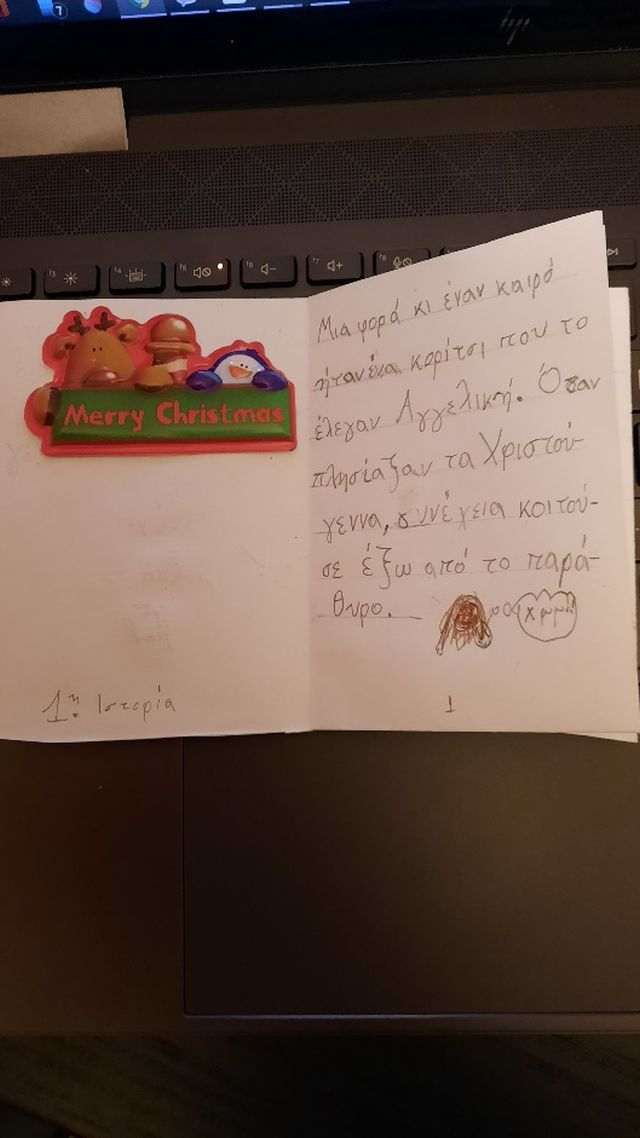 Merry Christmas
1η Ιστορία
Μια φορά κι έναν καιρό
ήταν ένα κορίτσι που το
έλεγαν Αγγελική. Όταν
πλησίαζαν τα Χριστού-
γεννα, συνέχεια κοιτού-
σε έξω από το παρά-
θυρο.
χμμ!!
1